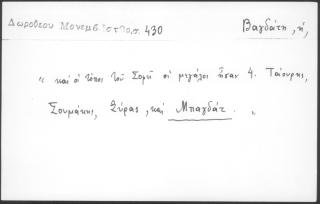 Δωροθεου Μονεμβ. Ιστορ, σ. 430
Βαγδάτη, ἡ,
" καὶ οἱ τόποι τοῦ Σοφῆ οἱ μεγάλοι ἦσαν 4. Ταύρης,
Σουμάκης, Σύρας, καὶ Μπαγδάτ. "